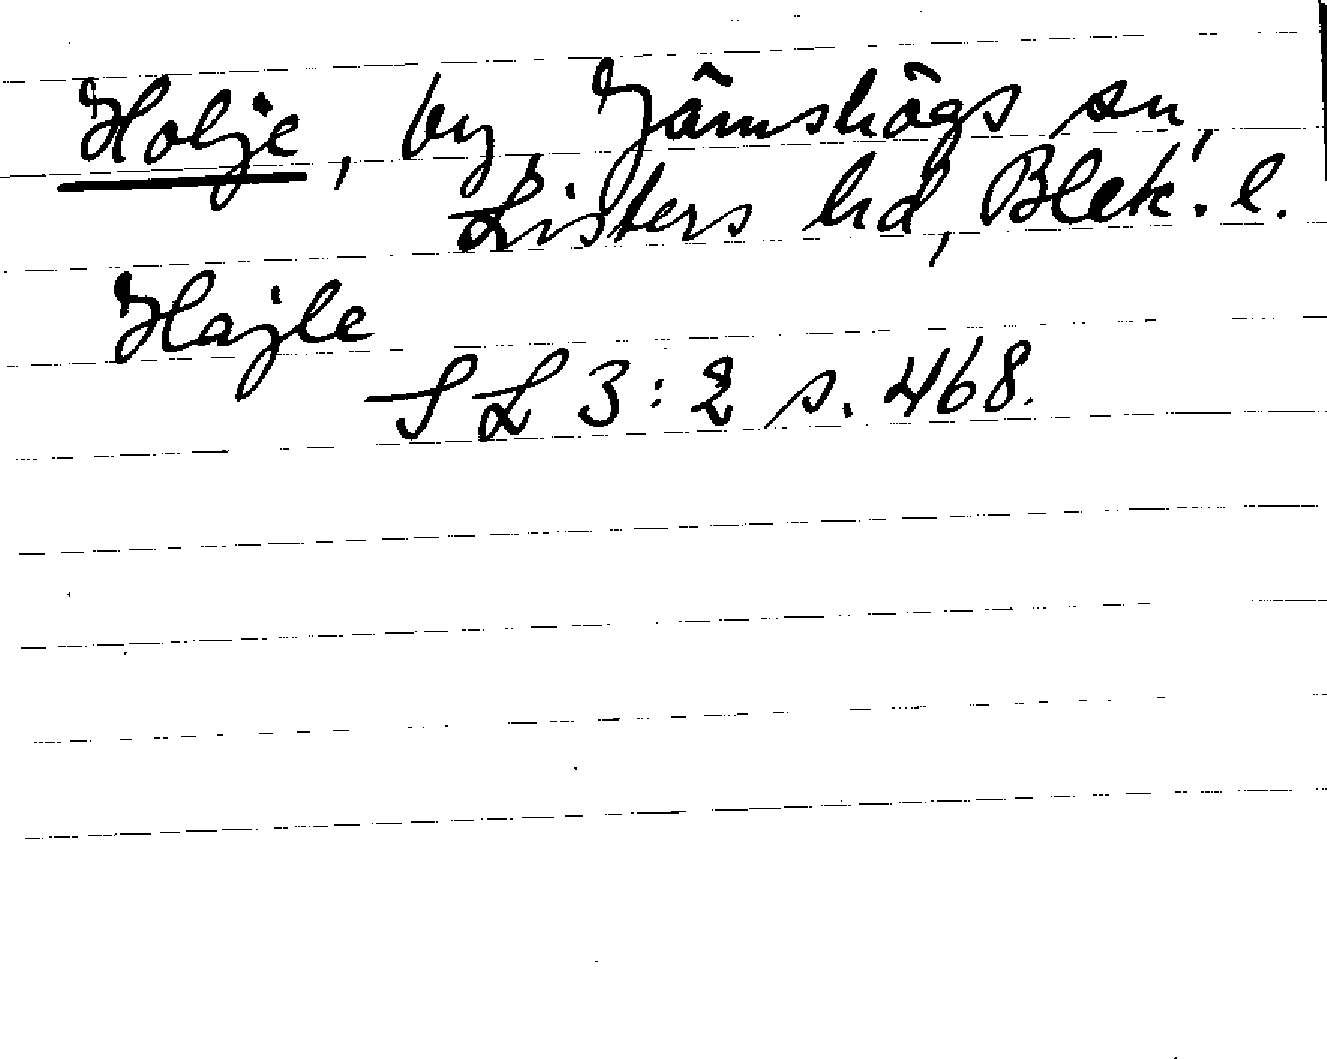 Holje, by, Jämshögs sn,
Listers hd, Blek. l.
Hajle
SL 3:2 s. 468.